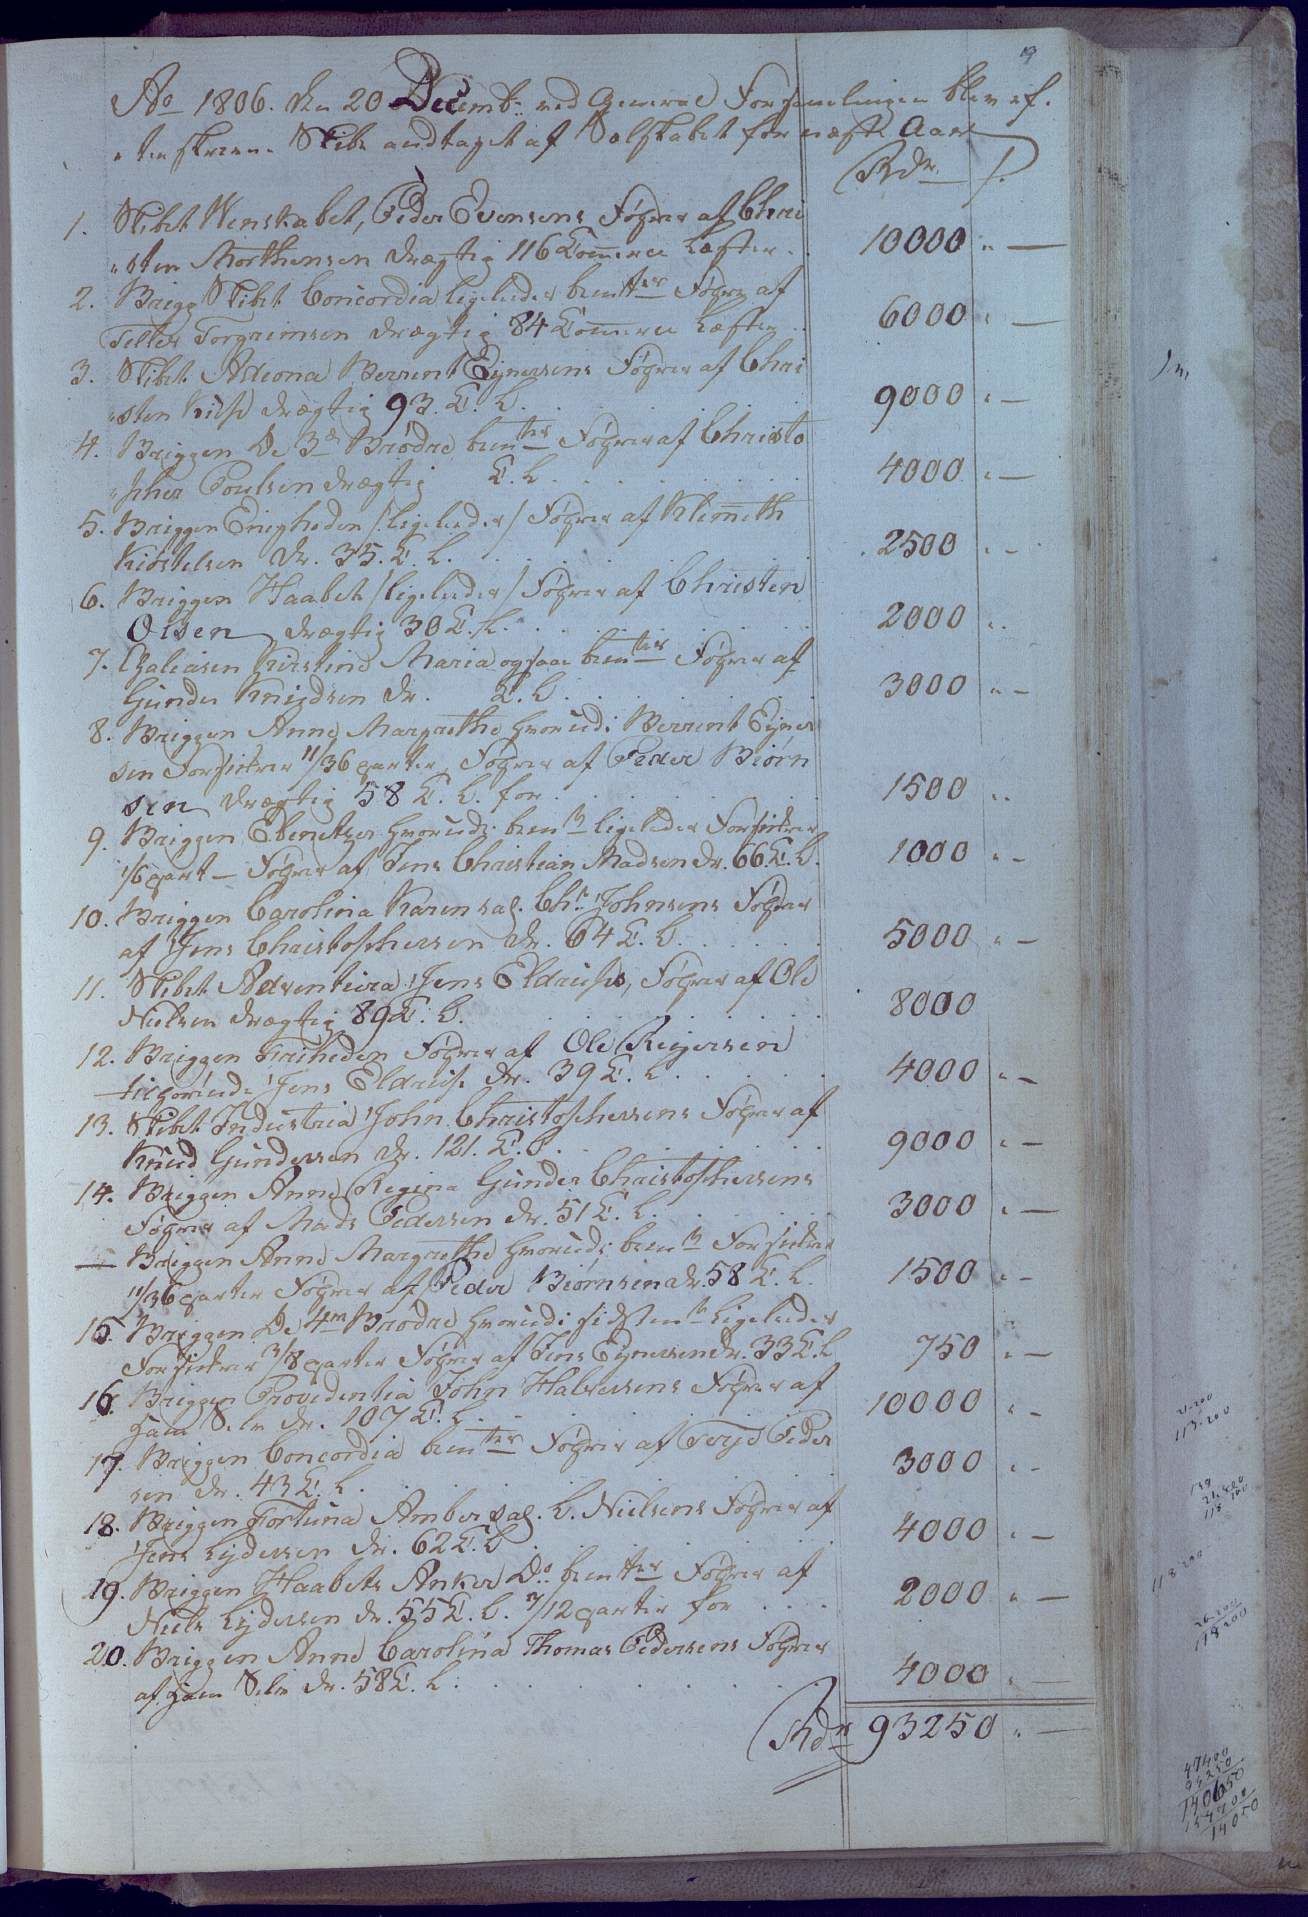 19
Ao 1806. den 20 Decembr. ved General Forsamlingen blev ef-
„terskrevne Skibe andtaget af Sælskabet for næste Aar
Rdr. s.
1. Skibet Wenskabet, Peder Evensens Føhrer af Chri
„sten Morthensen drægtig 116 Commerce Læster. 10000 „ —
2. Brigg Skibet Concordia ligeledes bemter Føhrer af
Tellef Torgrimsen drægtig 84 Commerce Læster 6000 „ —
3. Skibet Adeona Berrent Ejnersens Føhrer af Chri
„sten drægtig 93. C. L. 9000 „ —
4. Briggen De 3de Brødre bemter Føhrer af Christo
„pher Poulsen drægtig C. L. 4000 „ —
5. Briggen Enigheden /:ligeledes/ Føhrer af Klemeth
Kittelsen dr. 35. C. L. 2500 „ -
6. Briggen Haabet /ligeledes/ Føhrer af Christen
Olsen drægtig 30 C. L. 2000 „.
7. Galeasen Kirstine Maria ogsaa bemter Føhrer af
Gunder Knudsen dr. C. L. 3000 „ -
8. Briggen Anne Margrethe hvorudi Berrent Ejner
sen Forsikrer 11/36 parter, Føhrer af Peder Biørn
sen drægtig 58 C. L. for 1500 „.
9. Briggen Ebenetzer hvorudi bemte ligeledes Forsikrer
1/6 part — Føhrer af Jens Christian Madsen dr. 66. C. L. 1000 „ -
10. Briggen Carolina Karen sal. Chr. Johnsens Føhrer
af Jens Christophersen dr. 64 C. L. 5000 „ —
11. Skibet Adventeura Jens Eldrups, Føhrer af Ole
Nielsen drægtig 89 C. L. 8000
12. Briggen Friheden Føhrer af Ole Reijersen
tilhørende Jens Eldrup dr. 39 C. L. 4000 „ —
13. Skibet Industria John Christophersens Føhrer af
Knud Gundersen dr. 121. C. L. 9000 „ —
14. Briggen Anne Regina Gunder Christophersens
Føhrer af Mads Pedersen dr. 51 C. L. 3000 „ —
— Briggen Anne Margrethe hvorudi bemte Forsikrer
11/36 parter Føhrer af Peder Biørnsen dr. 58 C. L. 1500 „ -
15. Briggen De 4re Brødre hvorudi sidstente Ligeledes
Forsikrer 3/8 parter Føhrer af Jens Ejnersen dr. 33 C. L 750 „ —
16. Briggen Providentia John Halvorsens Føhrer af
ham Selv dr. 107 C. L. 10000 „ -
17. Briggen Concordia bemter Føhrer af Terje Peder
sen dr. 43 C. L. 3000 „ -
18. Briggen Fortuna Amber sal. C. Nielsens Føhrer af
Jens Lydersen dr. 62 C. L 4000 „ —
19. Briggen Haabets Anker Do. bemter Føhrer af
Niels Lydersen dr. 55 C. L. 7/12 parter for 2000 „ —
20. Briggen Anne Carolina Thomas Pedersens Føhrer
af ham Selv dr. 58 C. L. 4000 „ —
Rdr. 93250 „ —
113.200
118200
118200
47400
93250
140650
14050